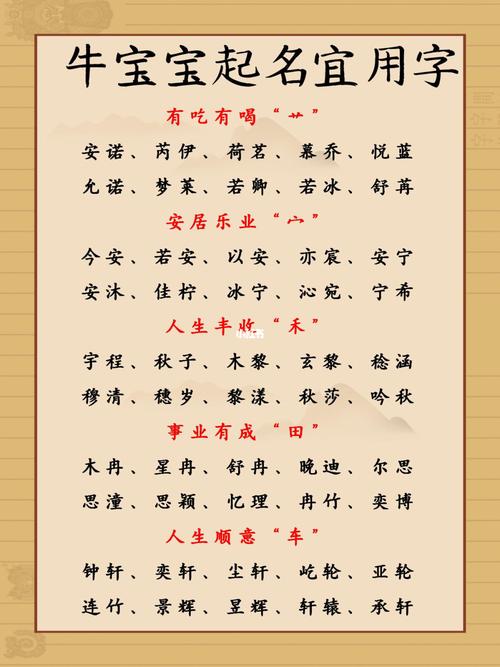 牛宝宝起名宜用字
有吃有喝“艹”
安诺、芮伊、荷茗、慕乔、悦蓝
允诺、梦莱、若卿、若冰、舒苒
安居乐业“宀”
今安、若安、以安、亦宸、安宁
安沐、佳柠、冰宁、沁宛、宁希
人生丰收“禾”
小红书
宇程、秋子、木黎、玄黎、稔涵
穆清、穗岁、黎漾、秋莎、吟秋
事业有成“田”
木冉、星冉、舒冉、晚迪、尔思
思潼、思颖、忆理、冉竹、奕博
人生顺意“车”
钟轩、奕轩、尘轩、屹轮、亚轮
连竹、景辉、昱辉、轩辕、承轩